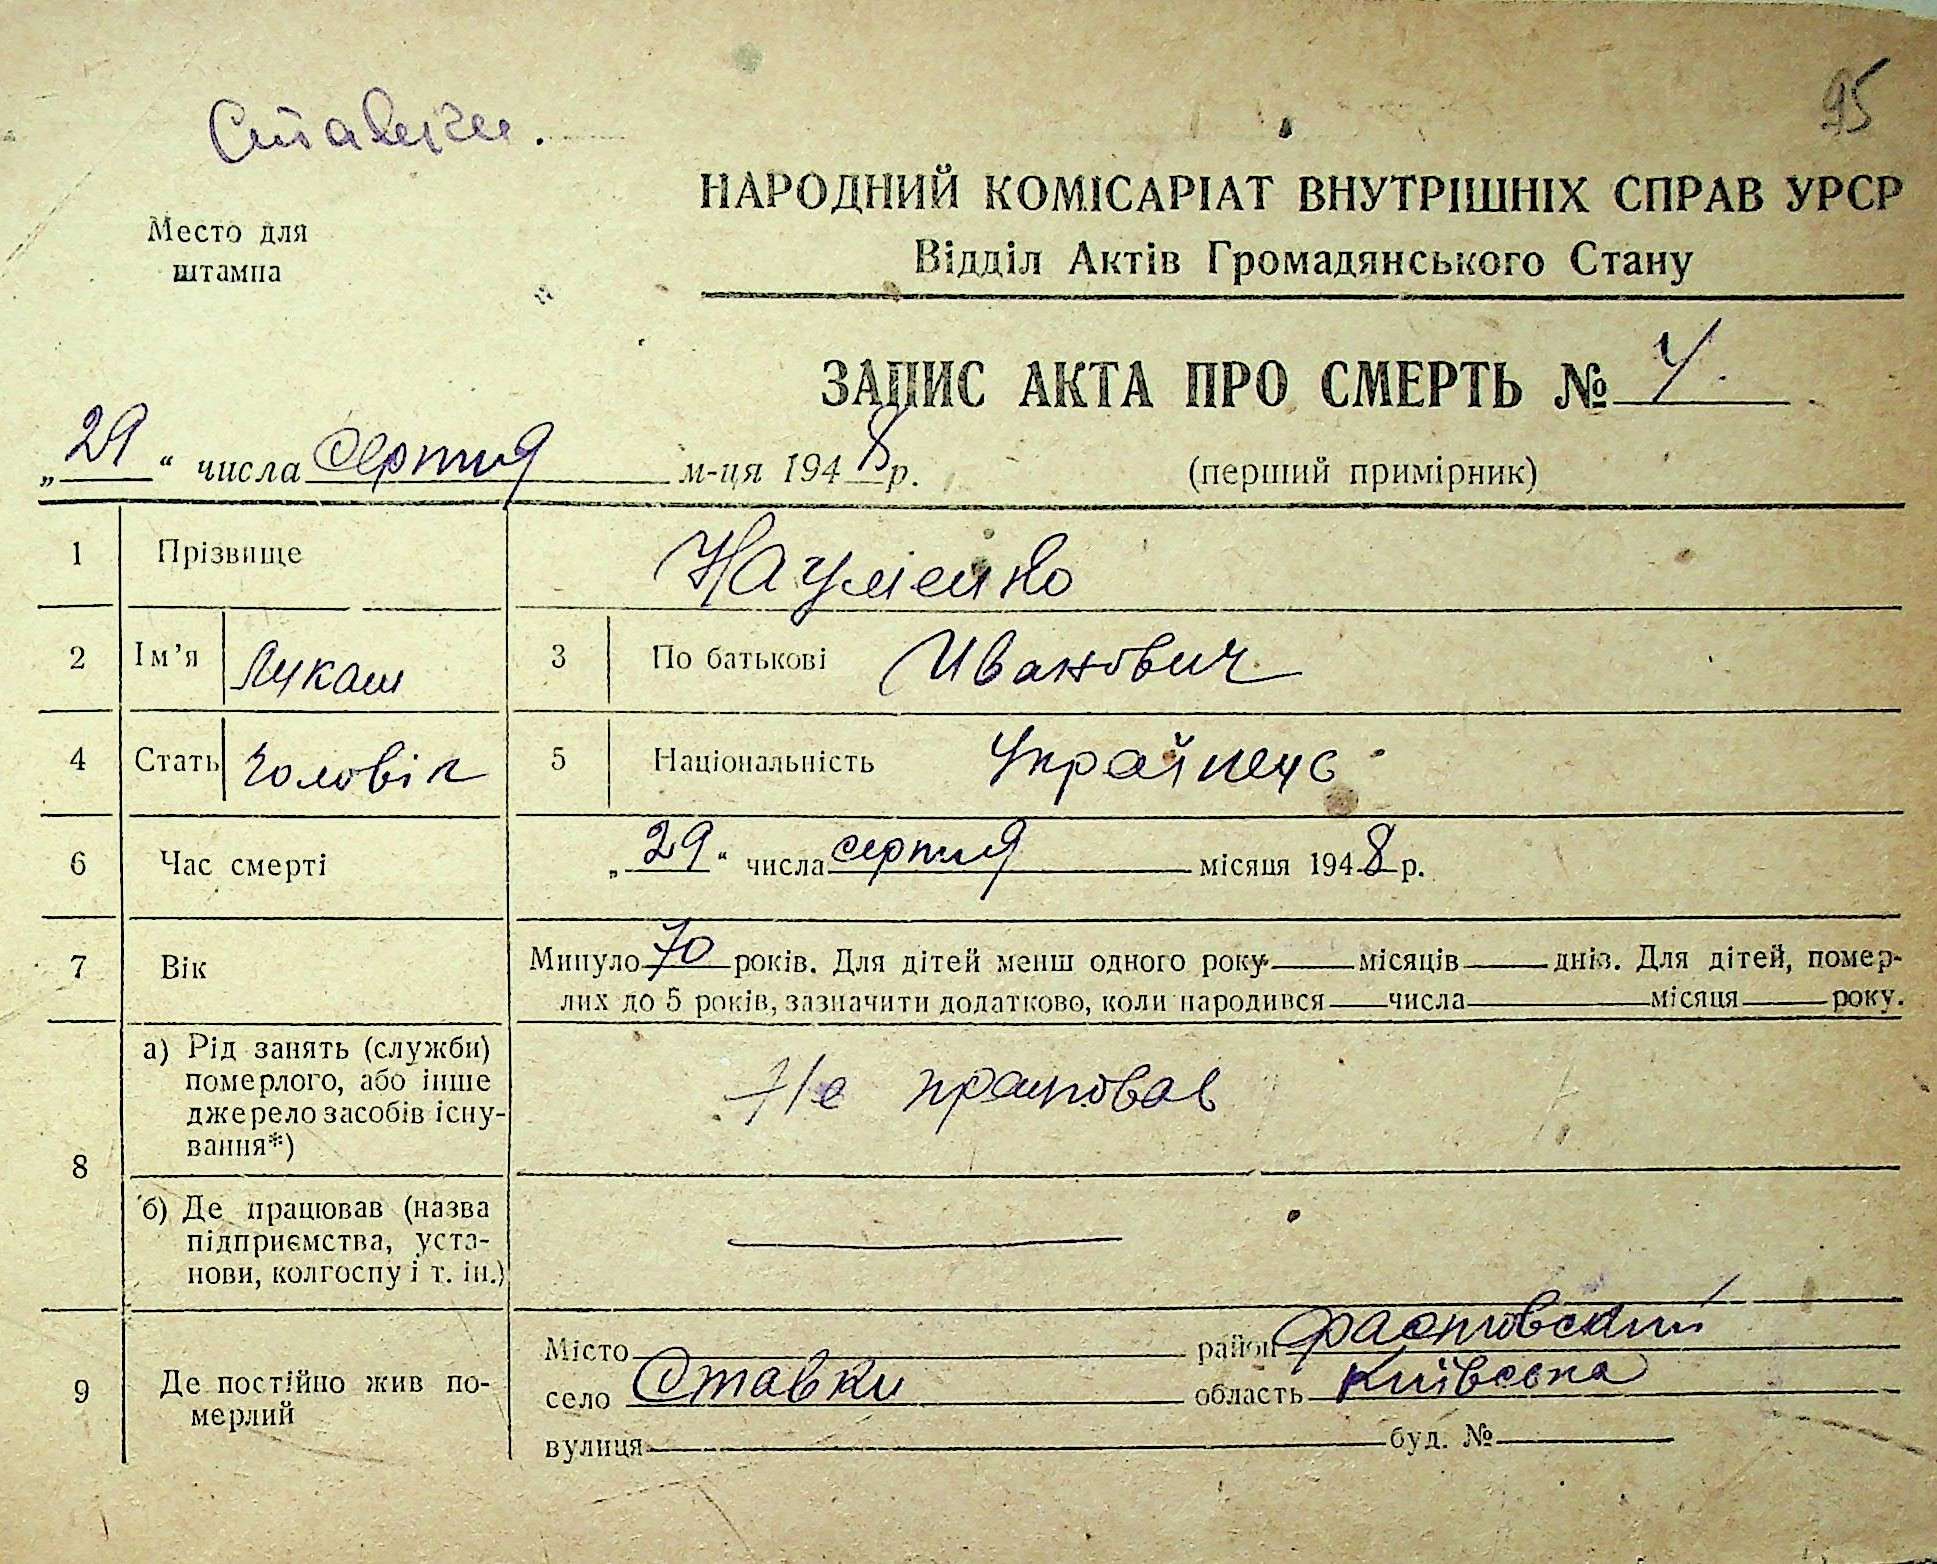 Ставки.
95
Место для
штампа
НАРОДНИЙ КОМІСАРІАТ ВНУТРІШНІХ СПРАВ УРСР
Відділ Актів Громадянського Стану
ЗАПИС АКТА ПРО СМЕРТЬ № 4.
„29“ числа серпня м-ця 1948 р. (перший примірник)
1 Прізвище Науменко
2 Ім’я Лукаш 3 По батькові Иванович
4 Стать Чоловік 5 Національність Українець
6 Час смерті „29“ числа серпня місяця 1948 р.
7 Вік Минуло 70 років. Для дітей менш одного року місяців днів. Для дітей, помер-
лих до 5 років, зазначити додатково, коли народився числа місяця року.
8 а) Рід занять (служби)
померлого, або інше
джерело засобів існу-
вання*) Не працював
б) Де працював (назва
підприємства, уста-
нови, колгоспу і т. ін.)
9 Де постійно жив по-
мерлий
Місто район Фастовский
село Ставки область Київська
вулиця буд. №